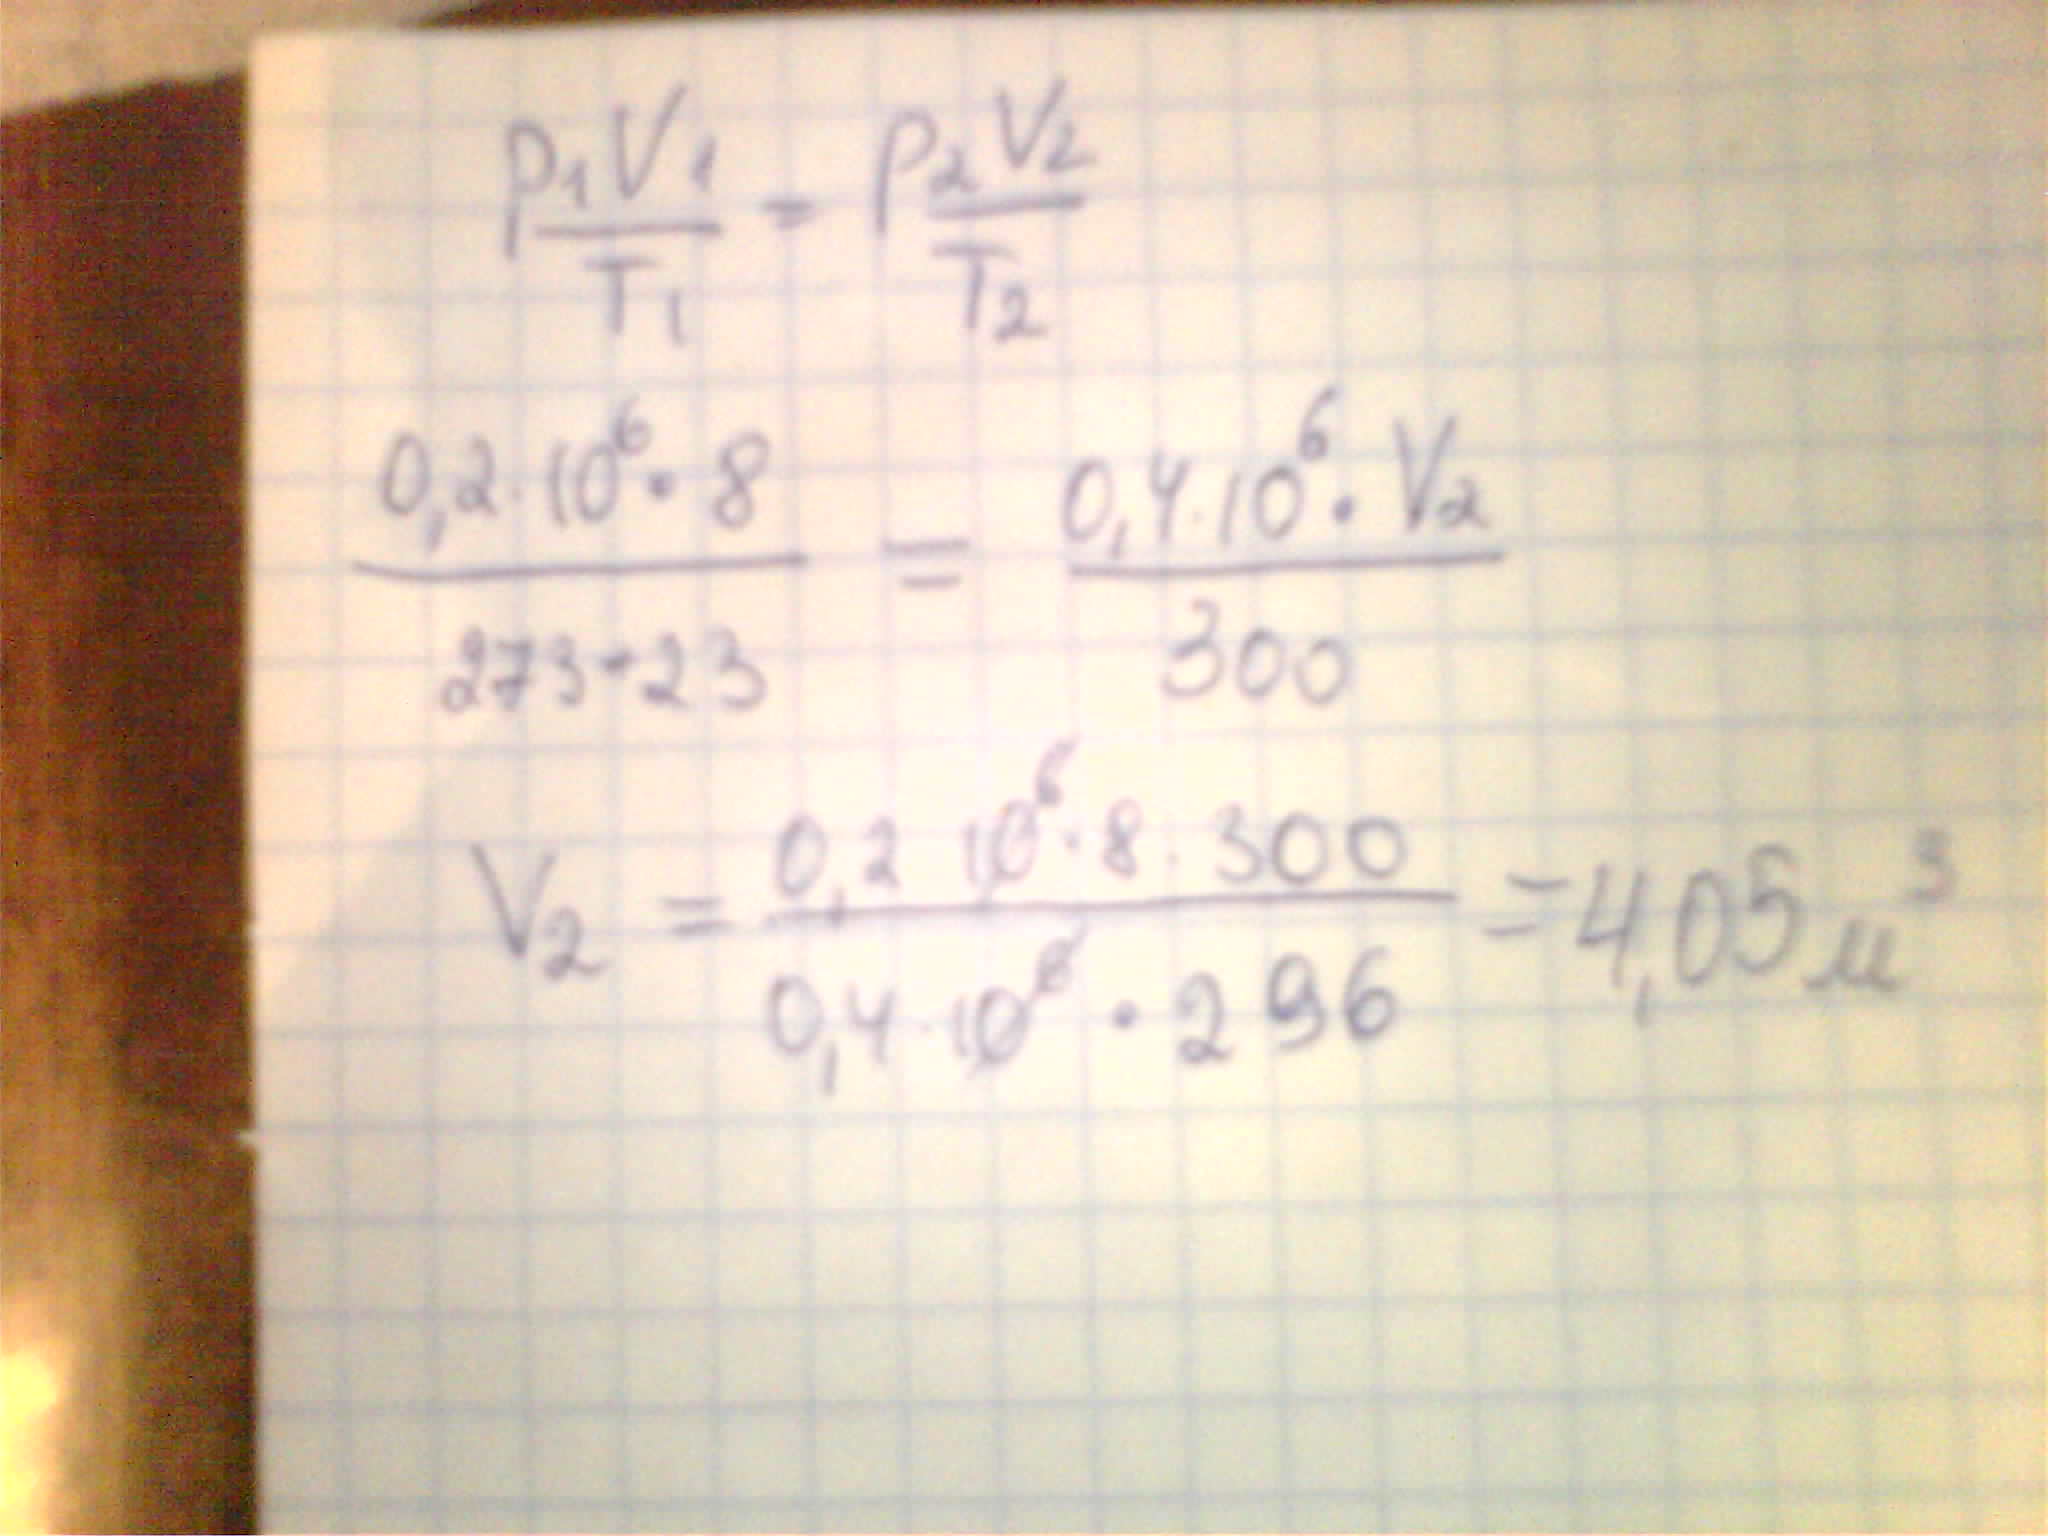 p₁V₁/T₁ = p₂V₂/T₂
0,2·10⁶·8/273+23 = 0,4·10⁶·V₂/300
V₂ = 0,2 10⁶·8·300/0,4·10⁶·296 = 4,05 м³